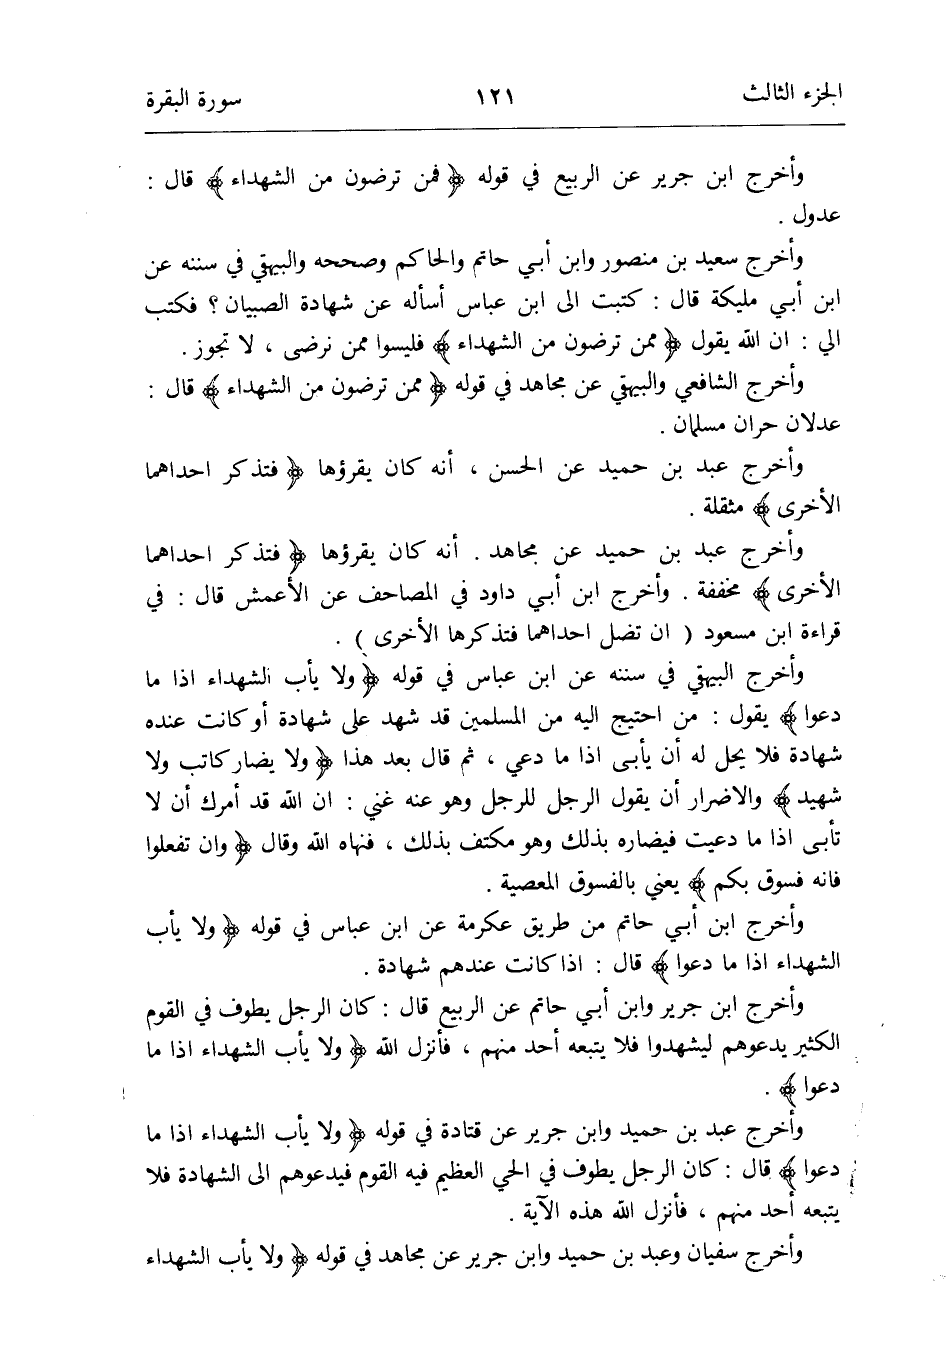 الجزء الثالث ١٢١ سورة البقرة
وأخرج ابن جرير عن الربيع في قوله ﴿ فمن ترضون من الشهداء ﴾ قال :
عدول .
وأخرج سعيد بن منصور وابن أبي حاتم والحاكم وصححه والبيهقي في سننه عن
ابن أبي مليكة قال : كتبت الى ابن عباس أسأله عن شهادة الصبيان ؟ فكتب
الي : ان الله يقول ﴿ ممن ترضون من الشهداء ﴾ فليسوا ممن نرضى ، لا تجوز .
وأخرج الشافعي والبيهقي عن مجاهد في قوله ﴿ ممن ترضون من الشهداء ﴾ قال :
عدلان حران مسلمان .
وأخرج عبد بن حميد عن الحسن ، أنه كان يقرؤها ﴿ فتذكر احداهما
الأخرى ﴾ مثقلة .
وأخرج عبد بن حميد عن مجاهد . أنه كان يقرؤها ﴿ فتذكر احداهما
الأخرى ﴾ مخففة . وأخرج ابن أبي داود في المصاحف عن الأعمش قال : في
قراءة ابن مسعود ( ان تضل احداهما فتذكرها الأخرى ) .
وأخرج البيهقي في سننه عن ابن عباس في قوله ﴿ ولا يأب الشهداء اذا ما
دعوا ﴾ يقول : من احتيج اليه من المسلمين قد شهد على شهادة أو كانت عنده
شهادة فلا يحل له أن يأبى اذا ما دعي ، ثم قال بعد هذا ﴿ ولا يضار كاتب ولا
شهيد ﴾ والاضرار أن يقول الرجل للرجل وهو عنه غني : ان الله قد أمرك أن لا
تأبى اذا ما دعيت فيضاره بذلك وهو مكتف بذلك ، فنهاه الله وقال ﴿ وان تفعلوا
فانه فسوق بكم ﴾ يعني بالفسوق المعصية .
وأخرج ابن أبي حاتم من طريق عكرمة عن ابن عباس في قوله ﴿ ولا يأب
الشهداء اذا ما دعوا ﴾ قال : اذا كانت عندهم شهادة .
وأخرج ابن جرير وابن أبي حاتم عن الربيع قال : كان الرجل يطوف في القوم
الكثير يدعوهم ليشهدوا فلا يتبعه أحد منهم ، فأنزل الله ﴿ ولا يأب الشهداء اذا ما
دعوا ﴾ .
وأخرج عبد بن حميد وابن جرير عن قتادة في قوله ﴿ ولا يأب الشهداء اذا ما
دعوا ﴾ قال : كان الرجل يطوف في الحي العظيم فيه القوم فيدعوهم الى الشهادة فلا
يتبعه أحد منهم ، فأنزل الله هذه الآية .
وأخرج سفيان وعبد بن حميد وابن جرير عن مجاهد في قوله ﴿ ولا يأب الشهداء